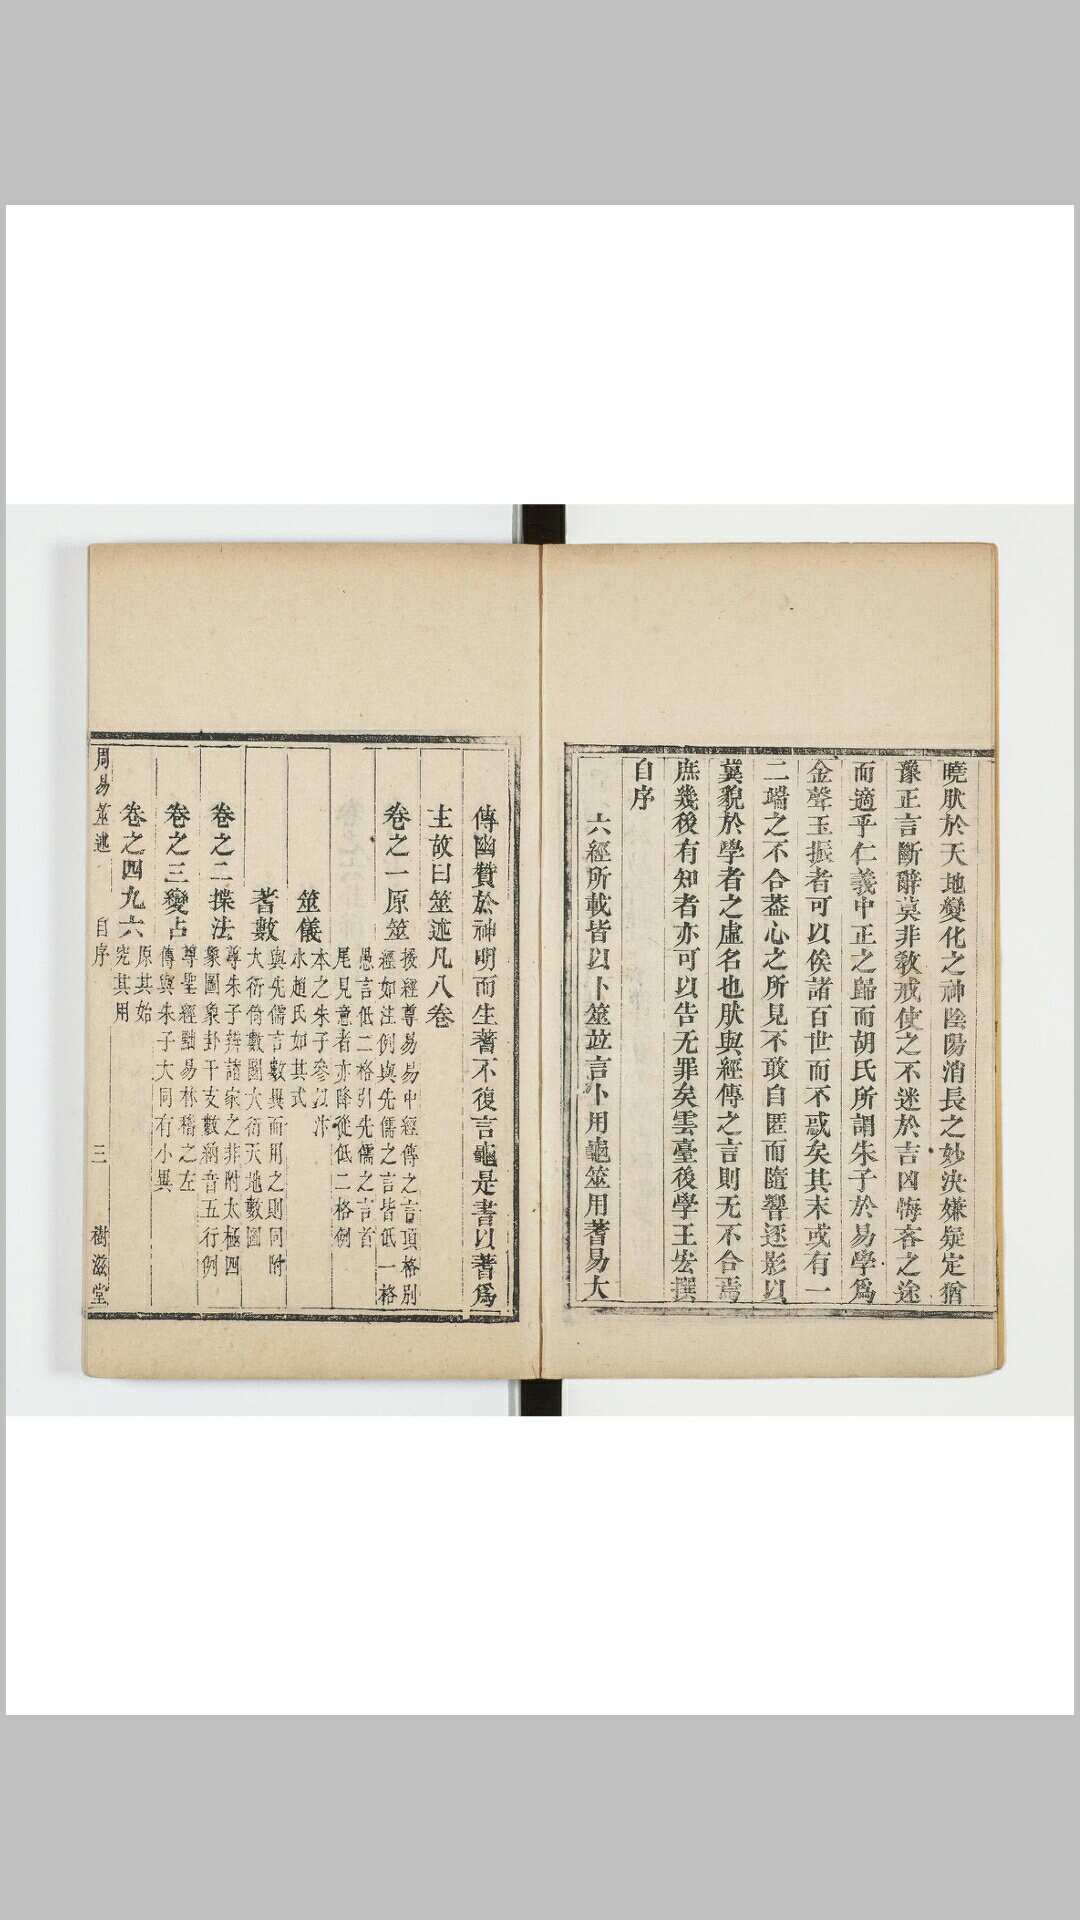 曉肰於天地變化之神陰陽消長之妙決嫌疑定猶
豫正言斷辭莫非敎戒使之不迷於吉凶悔吝之途
而適乎仁義中正之歸而胡氏所謂朱子於易學爲
金聲玉振者可以俟諸百世而不惑矣其末或有一
二端之不合葢心之所見不敢自匿而隨響逐影以
冀貌於學者之虛名也肰與經傳之言則无不合焉
庶幾後有知者亦可以告无罪矣雲臺後學王宏撰
自序
六經所載皆以卜筮竝言卜用龜筮用蓍易大
傳幽贊於神明而生蓍不復言龜是書以蓍爲
主故曰筮述凡八卷
卷之一原筮
援經尊易易中經傳之言頂格別
經如注例與先儒之言皆低一格
愚言低二格引先儒之言首
尾見意者亦降從低二格例
筮儀
本之朱子參以汴
水趙氏如其式
蓍數
與先儒言數異而用之則同附
大衍倚數圖大衍天地數圖
卷之二揲法
尊朱子辨諸家之非附太極四
象圖象卦干支數納音五行例
卷之三變占
尊聖經黜易林稽之左
傳與朱子大同有小異
卷之四九六
原其始
究其用
周易筮述 自序 三 樹滋堂